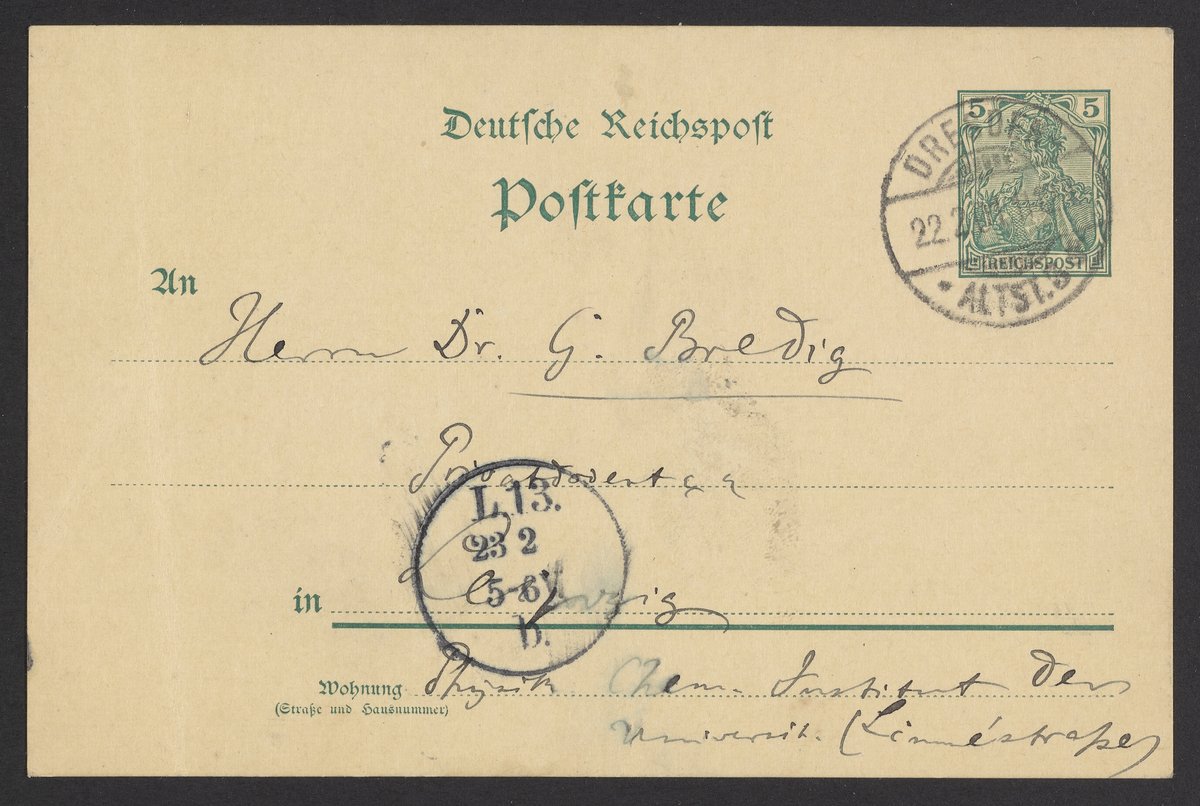 Deutsche Reichspost
Postkarte
5 5
REICHSPOST
DRESDEN
22.2
* ALTST.
An
Herrn Dr. G. Bredig
Privatdocent
L.13.
23 2
5-6
b.
in Leipzig
Wohnung Physik Chem. Institut der
(Straße und Hausnummer)
Universit. (Linnéstraße)